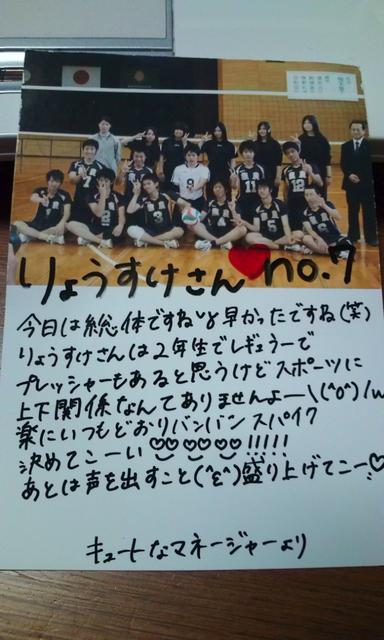 りょうすけさん♥no.7
今日は総体ですね!!早かったですね(笑)
りょうすけさんは2年生でレギュラーで
プレッシャーもあると思うけどスポーツに
上下関係なんてありませんよー\(^o^)/w
楽にいつもどおりバンバンスパイク
決めてこーい♡♡♡♡!!!!!
あとは声を出すこと(^ε^)盛り上げてこー♡
キュートなマネージャーより